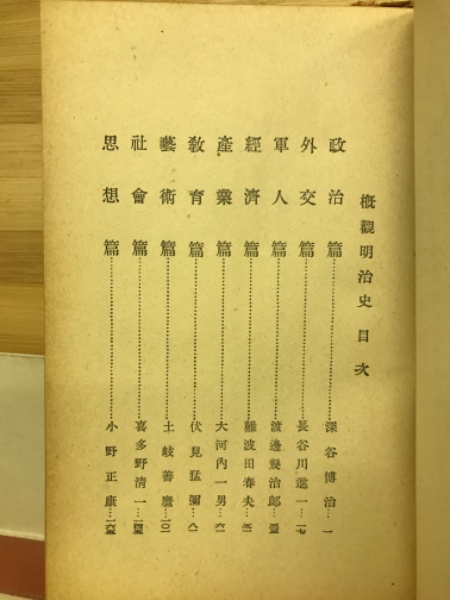 概觀明治史 目次
政治篇……深谷博治…一
外交篇……長谷川進一…一七
軍人篇……渡邊幾治郎…
經濟篇……難波田春夫…
產業篇……大河內一男…六一
敎育篇……伏見猛彌…八一
藝術篇……土岐善麿…一〇一
社會篇……喜多野淸一…
思想篇……小野正康…